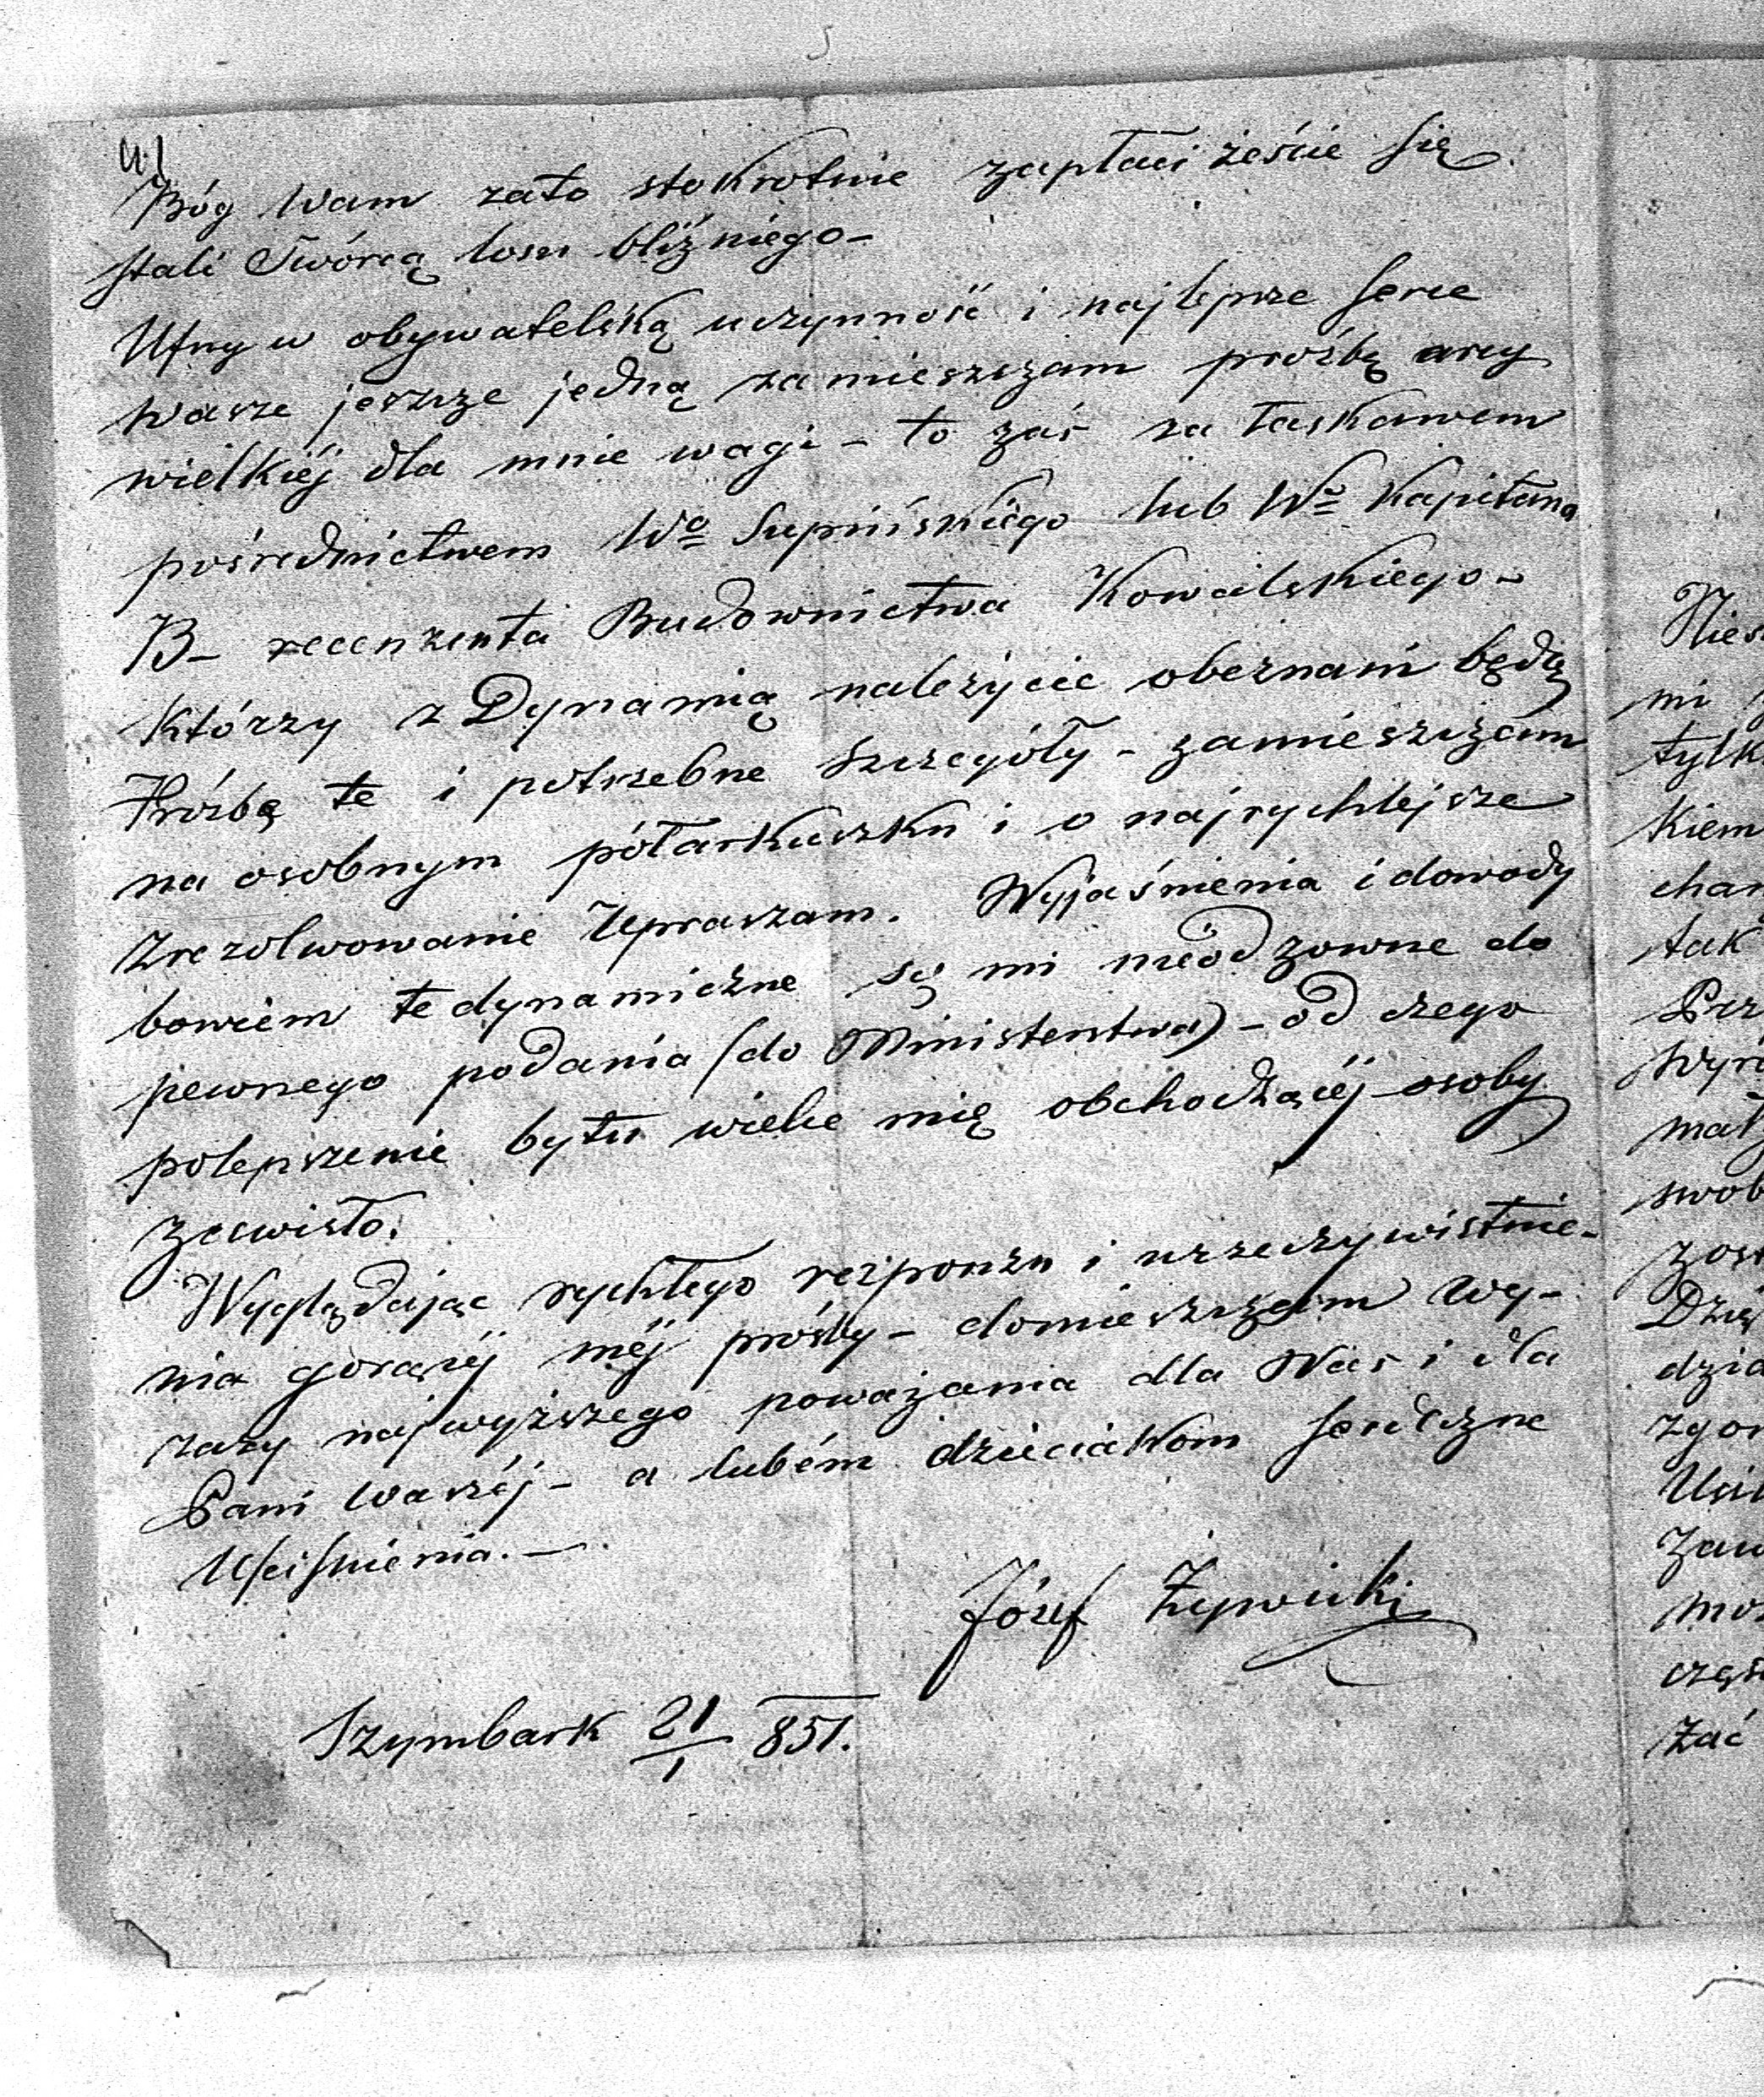 4.)
Bóg Wam zato stokrotnie zapłaci żeście się
stali Twórcą losu bliźniego –
Ufny w obywatelską uczynność i najlepsze serce
Wasze jeszcze jedną zamieszczam prośbę arcy
wielkiéj dla mnie wagi – to zaś za łaskawem
pośrednictwem Wo Supińskiego lub Wo Kapitana
B – recenzenta Budownictwa Kowalskiego –
Którzy z Dynamią należycie obeznani będą
Prośbę te i potrzebne szczegóły – zamieszczam
na osobnym półarkuszku i o najrychlejsze
zrezolwowanie upraszam. Wyjaśnienia i dowody
bowiem te dynamiczne są mi nieodzowne do
pewnego podania (do Ministerstwa) – od czego
polepszenie bytu wielce mię obchodzącéj osoby
zawisło.
Wyglądając rychłego responzu i urzeczywistnie-
nia gorącéj méj prośby – domieszczam wy-
razy najwyższego poważania dla Was i dla
Pani Waszéj – a lubém dzieciakom serdeczne
Uściśnienia. –
Józef Żywicki
Szymbark 21/1 851.
Nies
mi
tylk
kiem
char
tak
Prz
Wyr
mał
swob
zos
Dzię
dzia
zgor
Uści
Zaw
mo
częs
żać